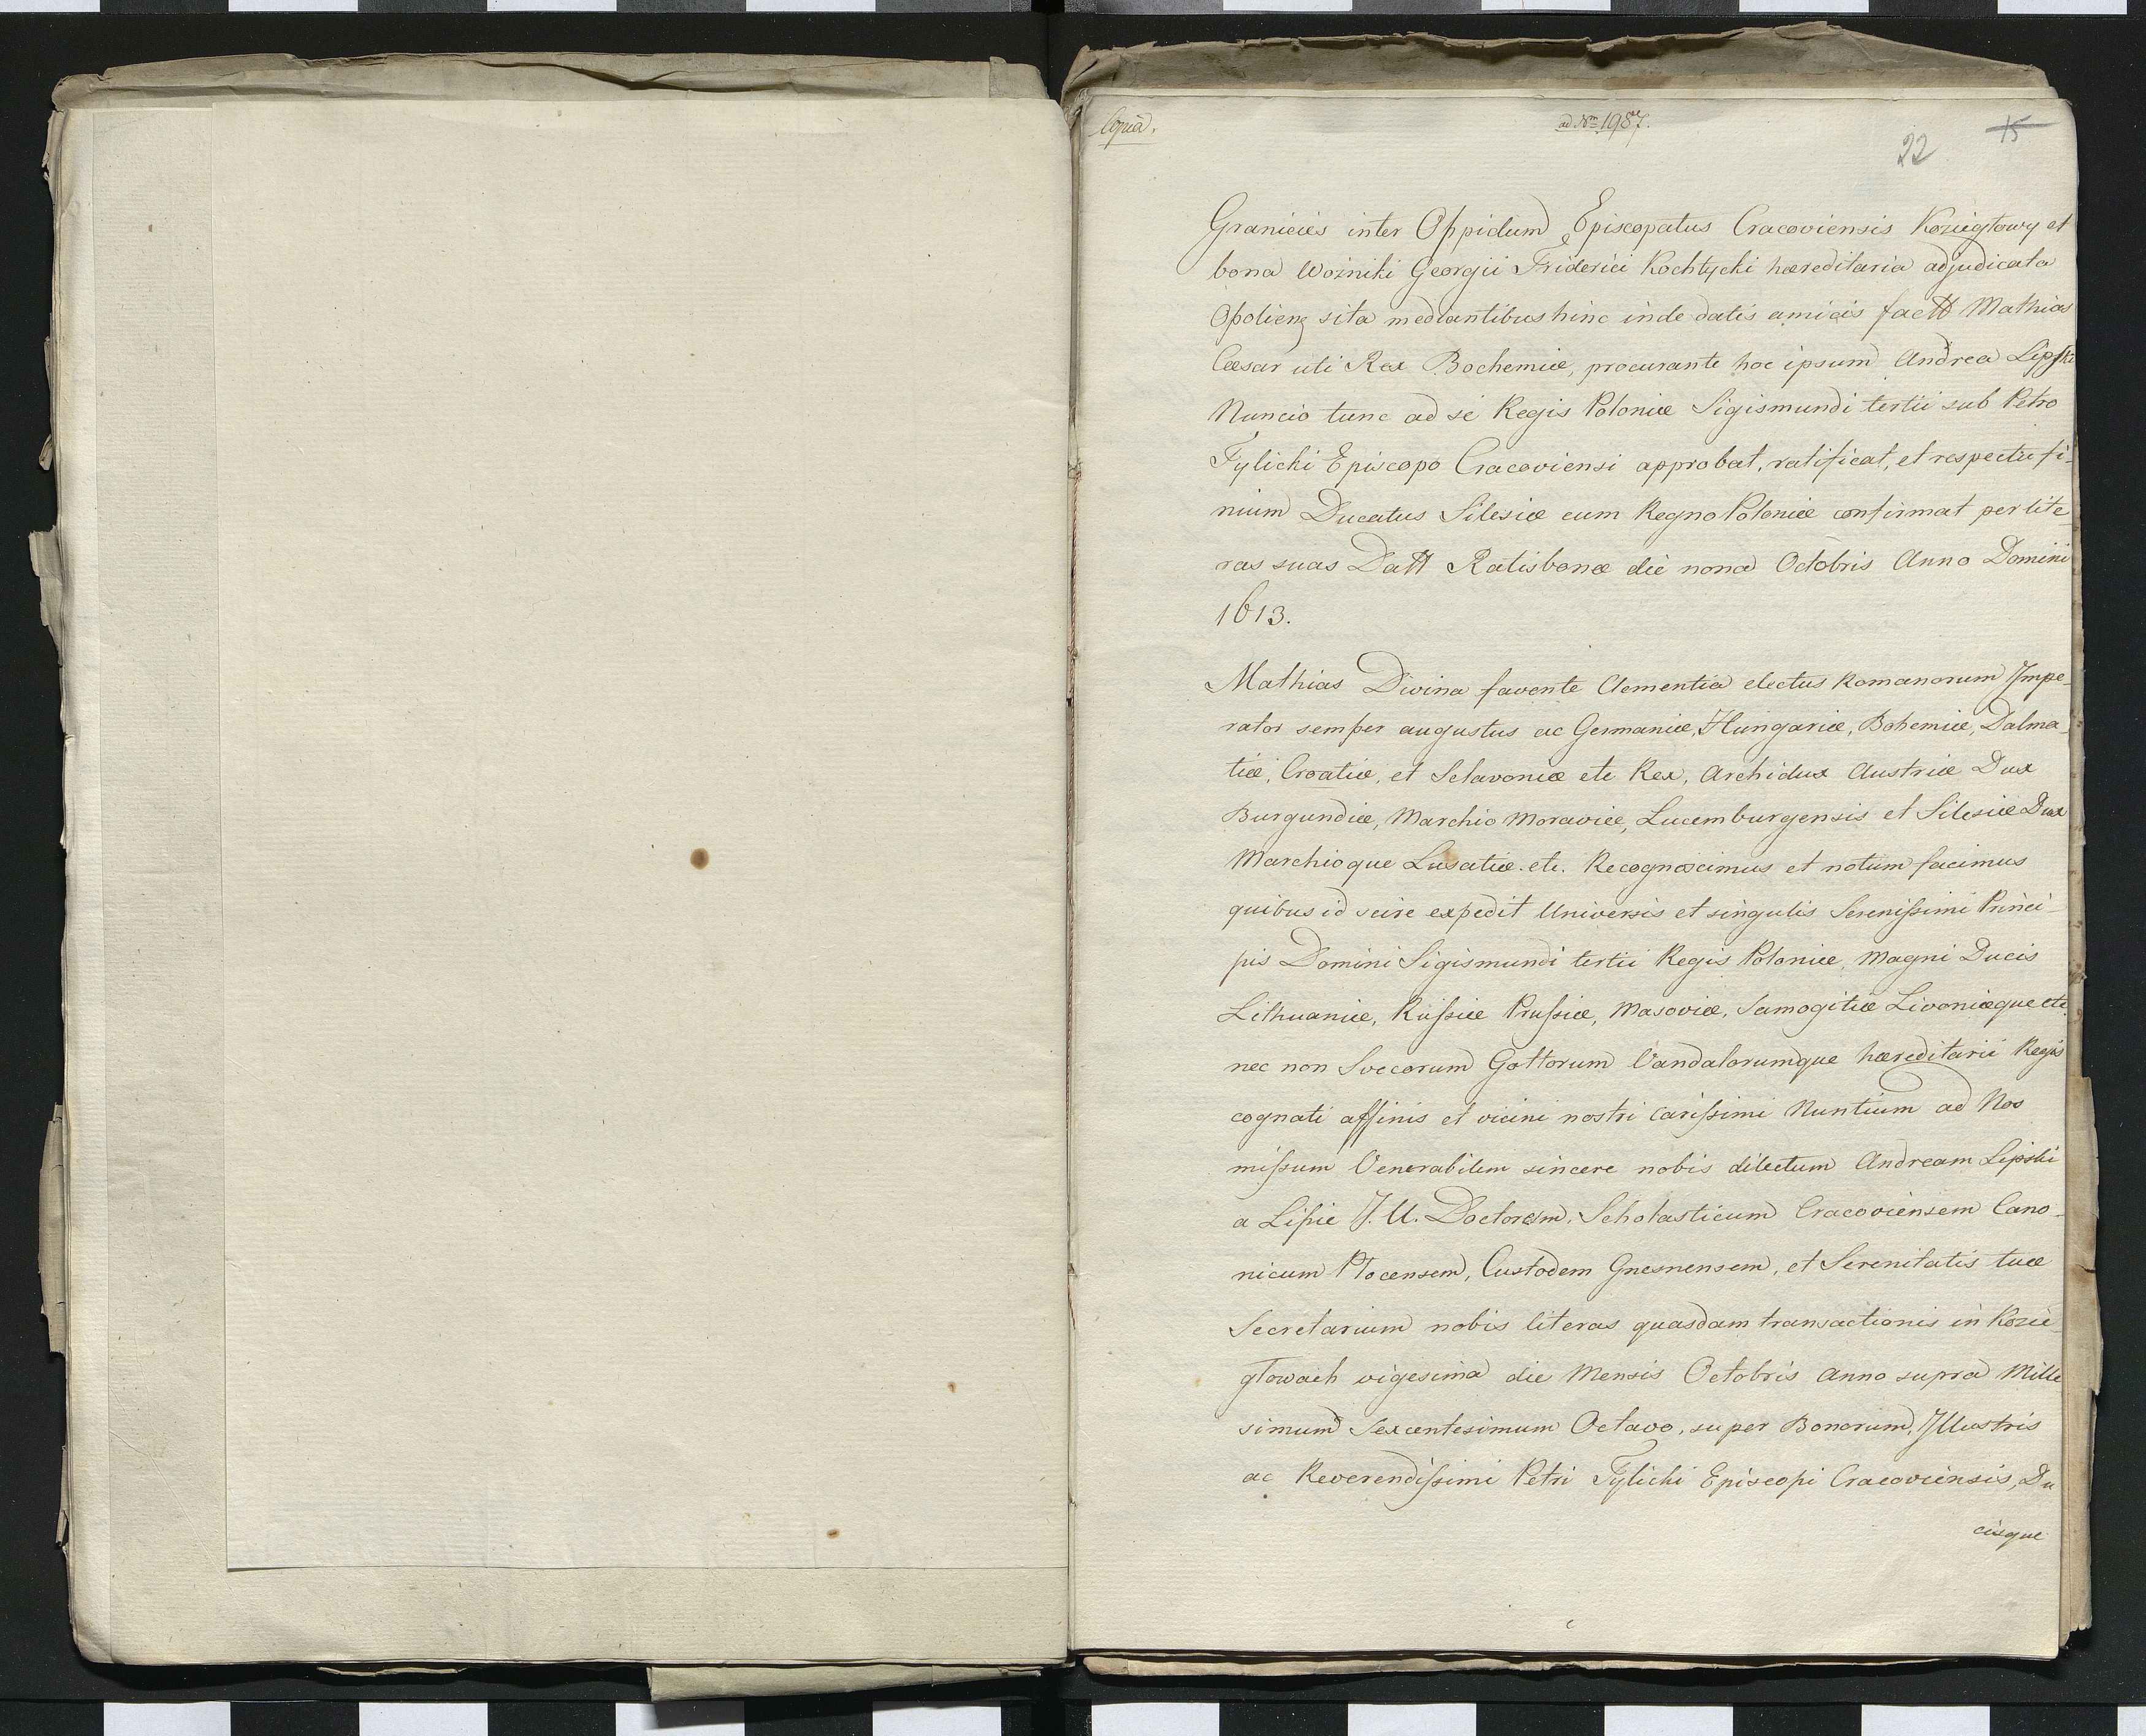 Copia.
ad Nm 1987.
22 15
Granicies inter Oppidum Episcopatus Cracoviensis Koziegłowy et
bona Woźniki Georgii Friderici Kochtycki hæreditaria adjudicata
Opolienz sita mediantibus hinc inde datis amicis factt Mathias
Cæsar uti Rex Bochemiæ, procurante hoc ipsum Andrea Lipski
Nuncio tunc ad se Regis Poloniæ Sigismundi tertii sub Petro
Tylicki Episcopo Cracoviensi approbat, ratificat, et respectu fi-
nium Ducatus Silesiæ cum Regno Poloniæ confirmat per lite-
ras suas Datt Ratisbonæ die nona Octobris Anno Domini
1613.
Mathias Divina favente Clementia electus Romanorum Impe-
rator semper augustus ac Germaniæ, Hungariæ, Bohemiæ, Dalma-
tiæ, Croatiæ, et Sclavoniæ etc Rex, Archidux Austriæ Dux
Burgundiæ, Marchio Moraviæ, Lucemburgensis et Silesiæ Dux
Marchioque Lusatiæ. etc. Recognoscimus et notum facimus
quibus id scire expedit Universis et singulis Serenissimi Princi-
pis Domini Sigismundi tertii Regis Poloniæ, Magni Ducis
Lithuaniæ, Russiæ Prussiæ, Masoviæ, Samogitiæ Livoniæque etc.
nec non Svecorum Gottorum Vandalorumque hæreditarii Regis
cognati affinis et vicini nostri carissimi Nuntium ad Nos
missum Venerabilem sincere nobis dilectum Andream Lipski
a Lipie J. U. Doctorem, Scholasticum Cracoviensem Cano-
nicum Plocensem, Custodem Gnesnensem, et Serenitatis tuæ
Secretarium nobis literas quasdam transactionis in Kozie-
głowach vigesima die Mensis Octobris Anno supra Mille
simum Sexcentesimum Octavo, super Bonorum, Illustris
ac Reverendissimi Petri Tylicki Episcopi Cracoviensis, Du
cisque